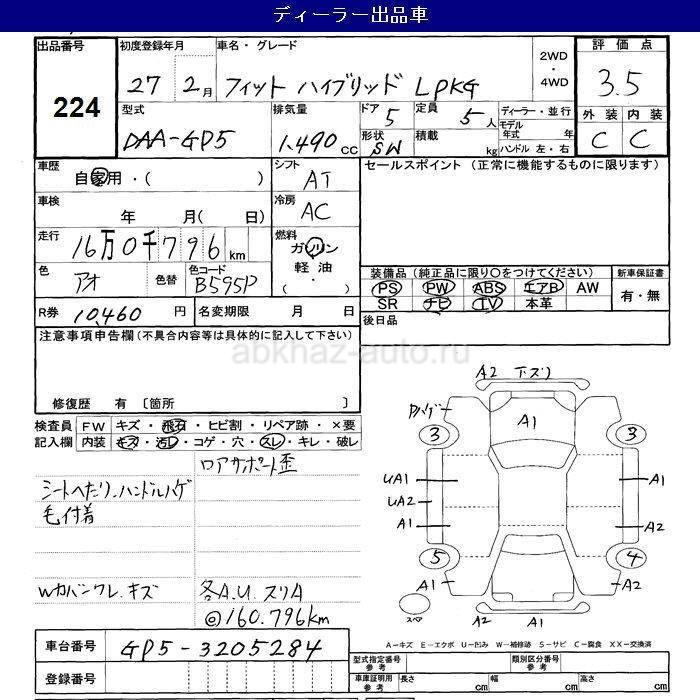 ディーラー出品車
出品番号 初度登録年月 車名・グレード 2WD・4WD 評価点
224 27 2月 フィット ハイブリッド LPKG 3.5
型式 排気量 ドア 5 定員 5人 ディーラー・並行 外装 内装
DAA-GP5 1,490cc 形状 SW 積載 kg モデル年式 年 ハンドル 左・右 C C
車歴 自家用・( ) シフト AT セールスポイント (正常に機能するものに限ります)
車検 年 月( 日) 冷房 AC
走行 16万0千796km 燃料 ガソリン 軽油・( )
色 アオ 色替 色コード B595P 装備品 (純正品に限り○をつけてください) 新車保証書
PS PW ABS エアB AW 有・無
SR ナビ TV 本革
R券 10,460円 名変期限 月 日 後日品
注意事項申告欄(不具合内容等は具体的に記入して下さい)
abkhaz-auto.ru
修復歴 有 〔箇所 〕
検査員記入欄 FW キズ・飛石・ヒビ割・リペア跡・×要
内装 キズ・汚レ・コゲ・穴・スレ・キレ・破レ
ロアサポート歪
シートヘたり.ハンドルハゲ
毛付着
Wカバンワレ.キズ 各A.U.スリA
◎160.796km
A2 下スリ
A1
3 3
UA1 A1
UA2
A1 A2
5 4
A1 A2
スペア A2 A1
A-キズ E-エクボ U-凹み W-補修跡 S-サビ C-腐食 XX-交換済
車台番号 GP5-3205284
登録番号
型式指定番号 参考 類別区分番号 参考
車庫証明用 参考 長さ cm 幅 cm 高さ cm